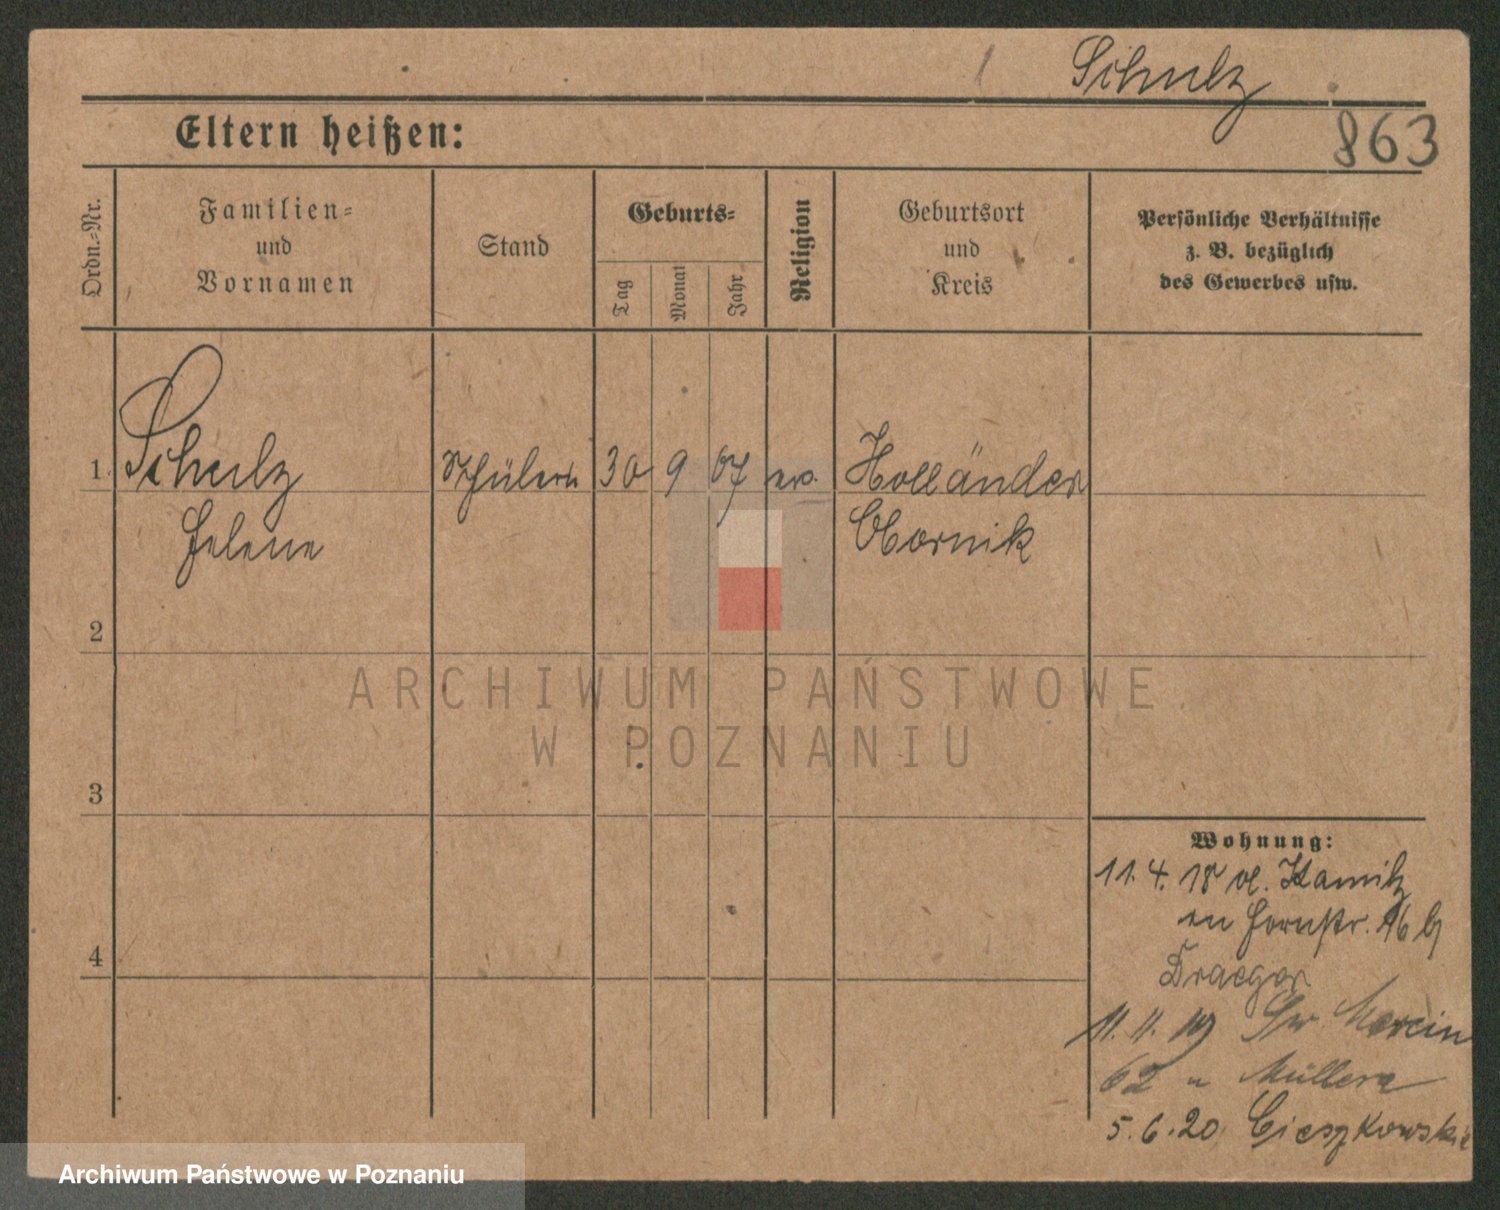 1 Schulz
863
Eltern heißen:
Ordn.-Nr.
Familien-
und
Vornamen
Stand
Geburts-
Tag
Monat
Jahr
Religion
Geburtsort
und
Kreis
Persönliche Verhältnisse
z. B. bezüglich
des Gewerbes usw.
1. Schulz Schülerin 30 9 07 ev. Holländer
Helene Obornik
2
3
4
Wohnung:
11. 4. 18
Hornstr. 16 b
Draeger
11. 11. 19 Św Marcin
62 u Müllera
5. 6. 20 Cieszkowskie
ARCHIWUM PAŃSTWOWE
W POZNANIU
Archiwum Państwowe w Poznaniu